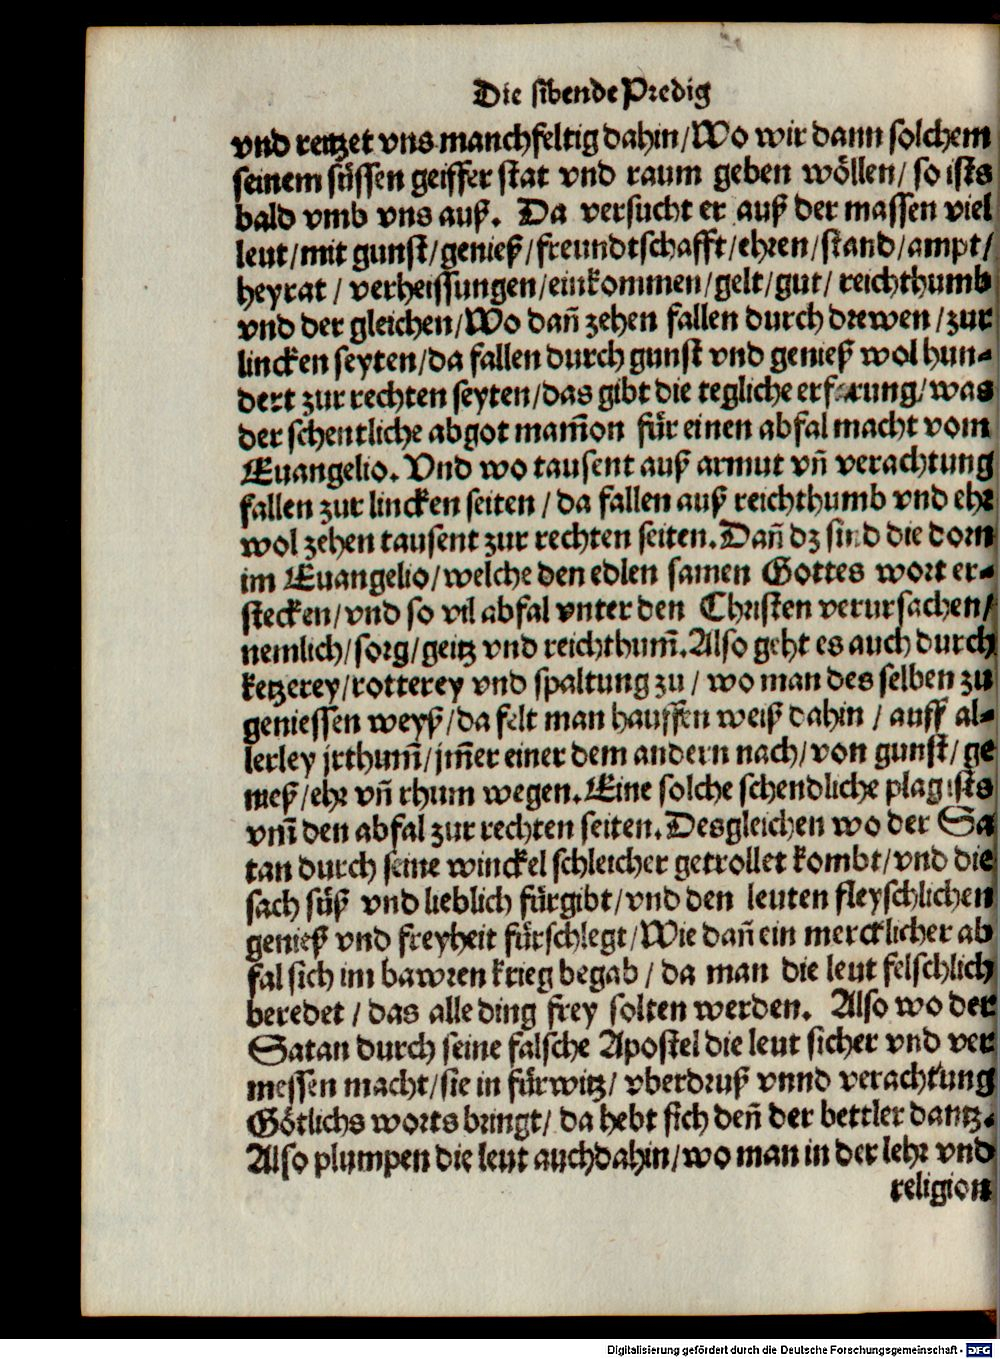 Die sibende Predig
vnd reitzet vns manchfeltig dahin/Wo wir dann solchem
seinem süssen geiffer stat vnd raum geben wöllen/ so ists
bald vmb vns auß. Da versucht er auß der massen viel
leut/mit gunst/genieß/freundtschafft/ehren/stand/ampt/
heyrat / verheissungen/einkommen/gelt/gut/ reichthumb
vnd der gleichen/Wo dañ zehen fallen durch drewen /zur
lincken seyten/da fallen durch gunst vnd genieß wol hun-
dert zur rechten seyten/das gibt die tegliche erfarung/was
der schentliche abgot mam̃on für einen abfal macht vom
Euangelio. Vnd wo tausent auß armut vñ verachtung
fallen zur lincken seiten / da fallen auß reichthumb vnd ehr
wol zehen tausent zur rechten seiten. Dañ dz sind die dorn
im Euangelio/welche den edlen samen Gottes wort er-
stecken/vnd so vil abfal vnter den Christen verursachen/
nemlich/sorg/geitz vnd reichthum̃. Also geht es auch durch
ketzerey/rotterey vnd spaltung zu / wo man des selben zu
geniessen weyß/da felt man hauffen weiß dahin / auff al-
lerley jrthum̃/jm̃er einer dem andern nach/von gunst/ ge
nieß/ehr vñ rhum wegen. Eine solche schendliche plag ists
vm̃ den abfal zur rechten seiten. Desgleichen wo der Sa
tan durch seine winckel schleicher getrollet kombt/vnd die
sach süß vnd lieblich fürgibt/vnd den leuten fleyschlichen
genieß vnd freyheit fürschlegt/Wie dañ ein mercklicher ab
fal sich im bawren krieg begab / da man die leut felschlich
beredet / das alle ding frey solten werden. Also wo der
Satan durch seine falsche Apostel die leut sicher vnd ver
messen macht/sie in fürwitz/ vberdruß vnnd verachtung
Götlichs worts bringt/ da hebt sich deñ der bettler dantz.
Also plumpen die leut auchdahin/wo man in der lehr vnd
religion
Digitalisierung gefördert durch die Deutsche Forschungsgemeinschaft - DFG